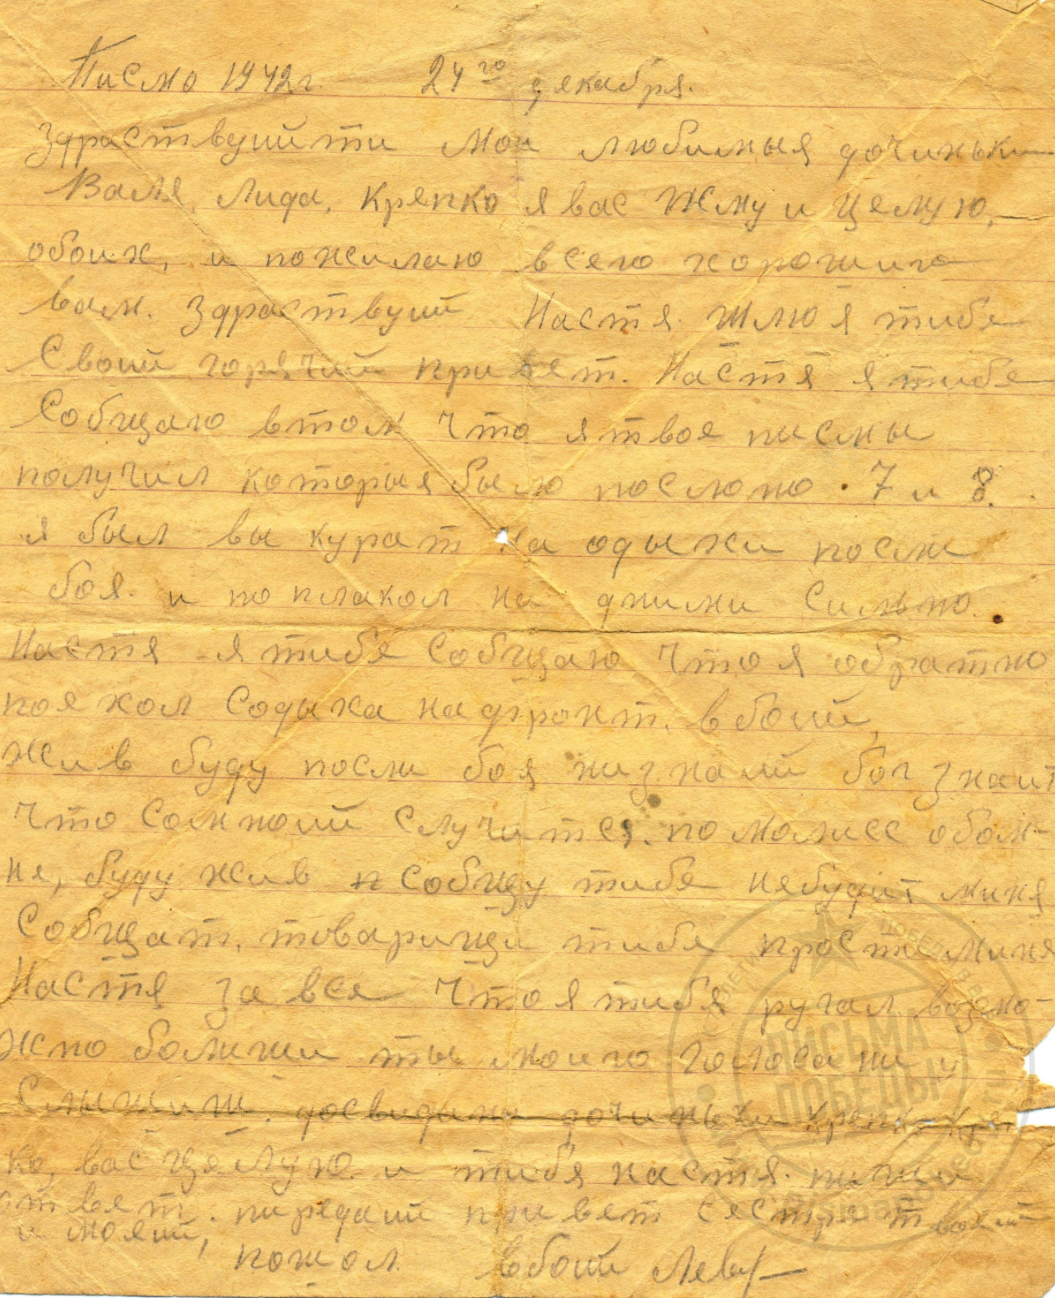 Писмо 1942 г. 24го декабря.
Здраствуийти мои любимыя дочиньки
Валя, Лида, Крепко я вас Жму и целую,
обоих, и пожилаю всего хорошиго
вам. Здраствуий Настя Шлю я тибе
Своий горячий привет. Настя я тибе
Собщаю втом Что я твое писмы
получил которыя было послоно. 7 и 8.
я был вы курат на одыхи посли
боя. и поплакол над ними Сильно.
Настя я тибе Собщаю Что я обратно
поехол Содыха на фронт. в боий,
Жив буду посли боя низнаий бог знаит
Что Сомноий Случится. помолисс обом-
не, буду жив Собщу тибе небудит миня
Собщат. товарищи тибе прости миня
Настя за вся Что я тибя ругал, возмо-
жно болиши ты моиго голоса ни у
Слышиш. досвидания дочиньки Крепко кре
ко, вас целую. и тибя настя. пиши
ответ. пиредаий привет Сестре твоей
и моеий, пошол в боий Лева
ПИСЬМА
ПОБЕДЫ